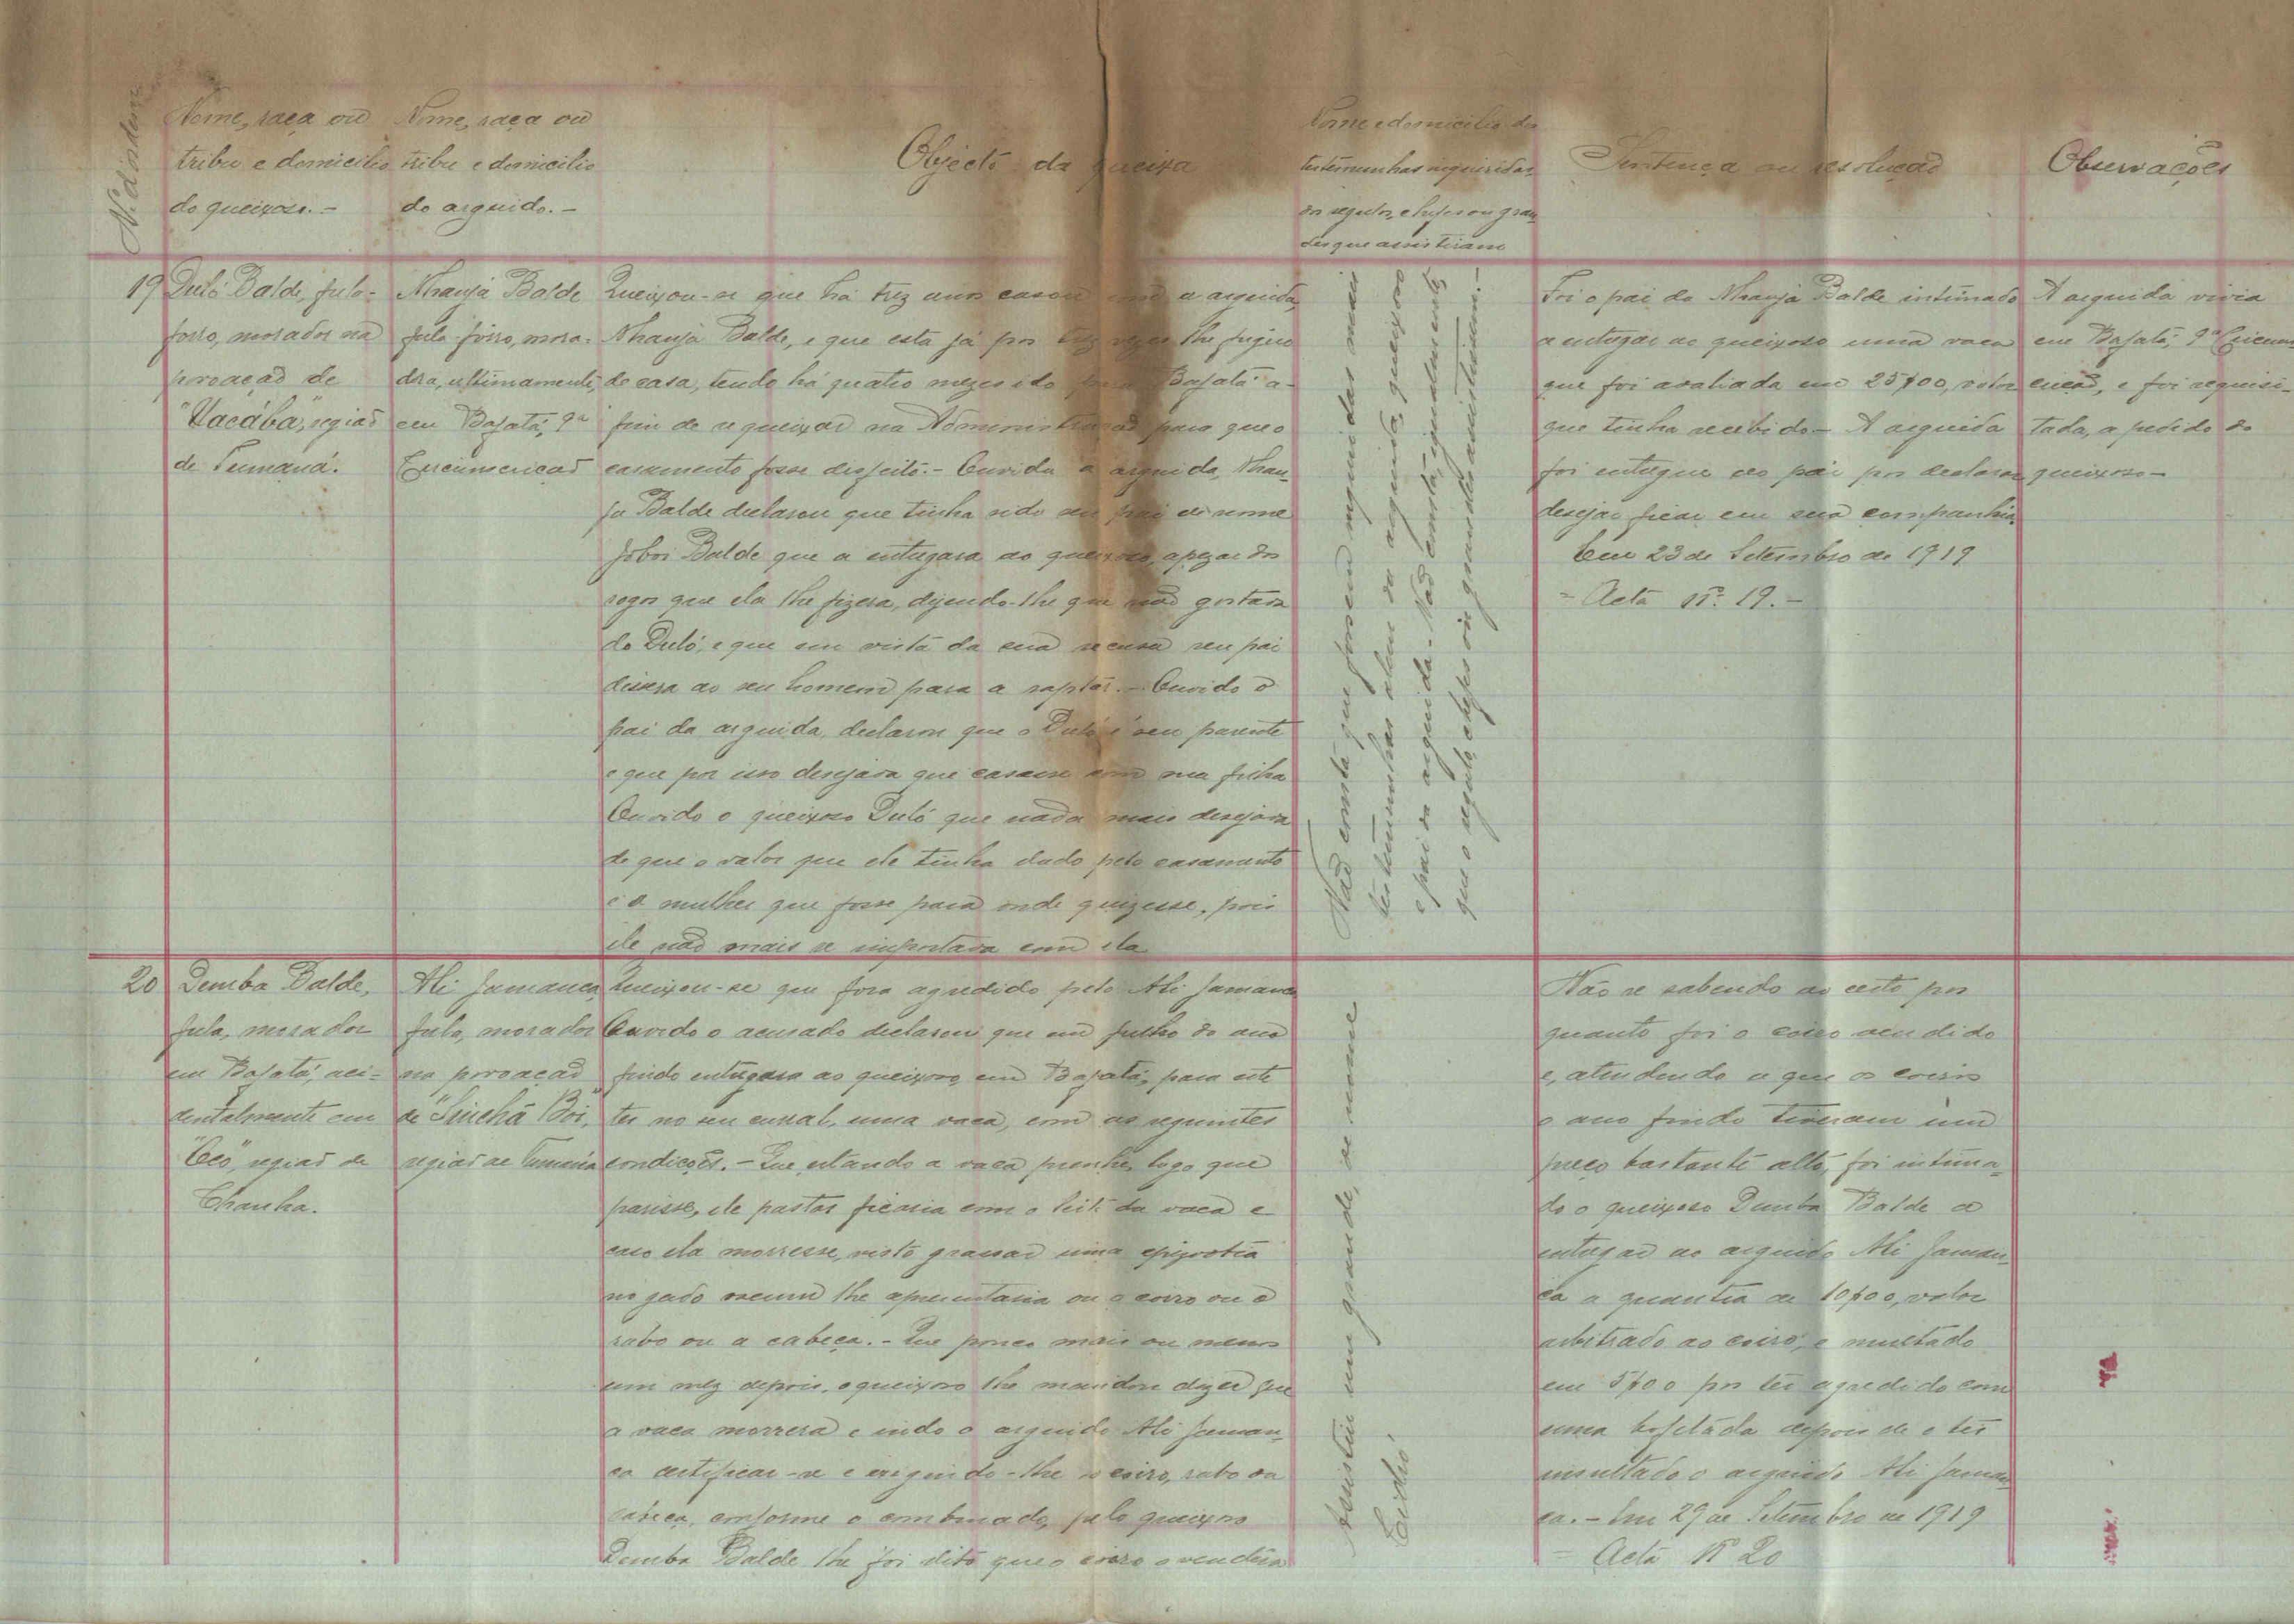 N.º d'ordem
Nome, raça ou
tribu e domicilio
do queixoso.-
Nome, raça ou
tribu e domicilio
do arguido.-
Objécto da queixa
Nome e domicilio das
testemunhas inqueridas,
do regulo, chefes ou gran
des que assistiram
Sentença ou resolução
Observações
19
Duló Balde, fula-
forro, morador na
povoação de
"Vacába", região
de Tumaná.
Nhanjá Balde
fula-forro, mora-
dora, ultimamente,
em Bafatá, 9ª
Circunscrição
Queixou-se que há trez anos casou com a arguida,
Nhanjá Balde, e que esta já por trez vezes lhe fugiu
de casa, tendo há quatro mezes ido para Bafatá a-
fim de se queixar na Administração para que o
casamento fosse disfeito.- Ouvida a arguida, Nhan-
ja Balde declarou que tinha sido seu pai de nome
Jobói Balde que a entregara ao queixoso, apezar dos
rogos que ela lhe fizera, dizendo-lhe que não gostava
do Duló, e que em vista da sua recusa seu pai
dissera ao seu homem para a raptar.- Ouvido o
pai da arguida, declarou que o Duló é seu parente
e que por isso desejava que casasse com sua filha
Ouvido o queixoso Duló que nada mais desejava
do que o valor que ele tinha dado pelo casamento
e a mulher que fosse para onde quizesse, pois
ele não mais se importava com ela
Não consta que fossem inqueridas mais
testemunhas além da arguida, queixoso
e pai da arguida.- Não consta, egualmente,
que o regulo, chefes ou grandes assistissem.-
Foi o pai da Nhanjá Balde intimado
a entregar ao queixoso uma vaca
que foi avaliada em 25$00, valor
que tinha recebido- A arguida
foi entregue ao pai por declarar
desejar ficar em sua companhia.
Em 23 de Setembro de 1919
= Acta nº. 19.-
A arguida vivia
em Bafatá, 9ª Circuns
crição, e foi requisi-
tada, a pedido do
queixoso-
20
Demba Balde,
fula, morador
em Bafatá, aci-
dentalmente em
"Ceo", região de
Chanha.
Ali Jamanca,
fula, morador
na povoação
de "Sinchã Boi",
região de Tumaná
Queixou-se que fora agredido pelo Ali Jamanca
Ouvido o acusado declarou que em Julho do ano
findo entregara ao queixoso, em Bafatá, para este
ter no seu curral, uma vaca, com as seguintes
condições.- Que, estando a vaca prenhe, logo que
parisse, ele pastor ficaria com o leite da vaca e
caso ela morresse, visto grassar uma epizootia
no gado vacum lhe apresentaria ou o coiro ou o
rabo ou a cabeça.- Que pouco mais ou menos
um mez depois, o queixoso lhe mandou dizer que
a vaca morrera e indo o arguido Ali Jaman-
ca certificar-se e exigindo-lhe o coiro, rabo ou
cabeça, conforme o combinado, pelo queixoso
Demba Balde lhe foi dito que o coiro o vendera
Assistiu um grande, de nome
Não se sabendo ao certo por
quanto foi o coiro vendido
e, atendendo a que os coiros
o ano findo tiveram um
preço bastante alto, foi intima-
do o queixoso Demba Balde a
entregar ao arguido Ali Jaman-
ca a quantia de 10$00, valor
arbitrado ao coiro, e multado
em 5$00 por ter agredido com
uma bofetada depois de o ter
insultado o arguido Ali Jaman
ca.- Em 29 de Setembro de 1919
= Acta Nº 20